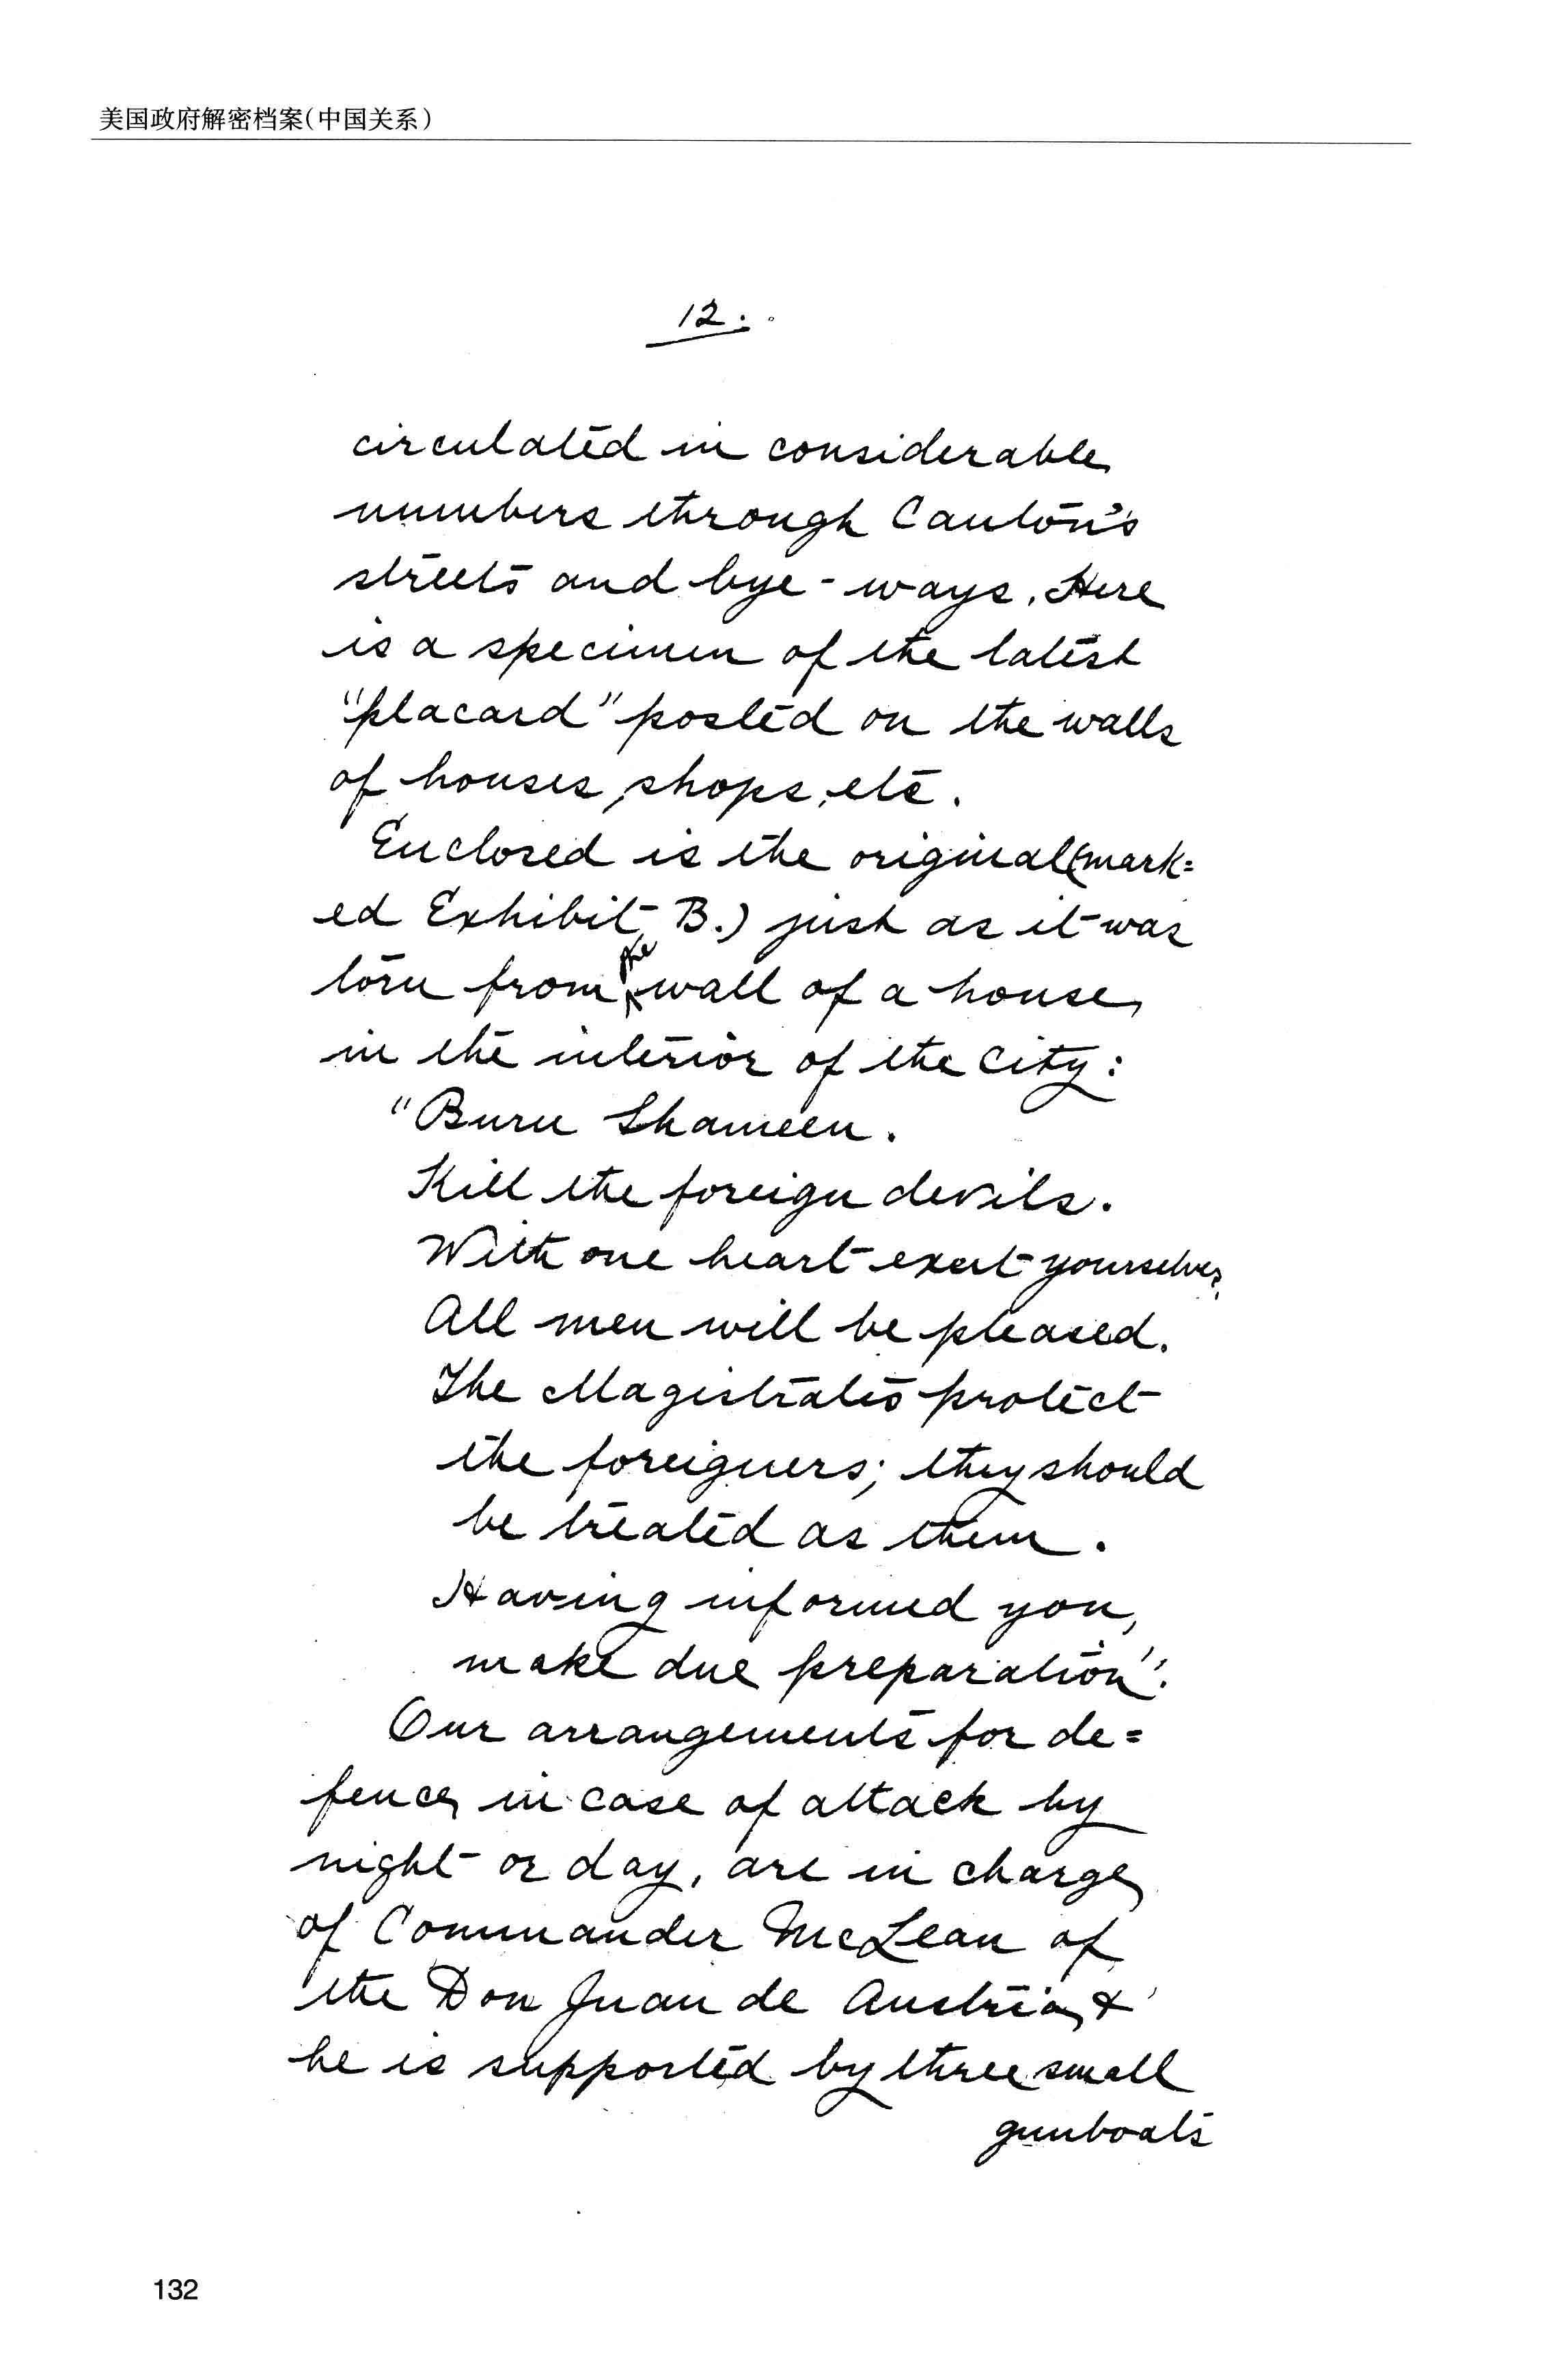 美国政府解密档案(中国关系)
12.
circulated in considerable
numbers through Canton's
streets and bye-ways. Here
is a specimen of the latest
"placard" posted on the walls
of houses, shops, etc.
Enclosed is the original (mark=
ed Exhibit B.) just as it was
torn from the wall of a house
in the interior of the city:
"Burn Shameen.
Kill the foreign devils.
With one heart exert yourselves.
All men will be pleased.
The Magistrates protect
the foreigners; they should
be treated as them.
Having informed you,
make due preparation".
Our arrangements for de=
fence, in case of attack by
night or day, are in charge
of Commander McLean of
the Don Juan de Austria, &
he is supported by three small
gunboats
132